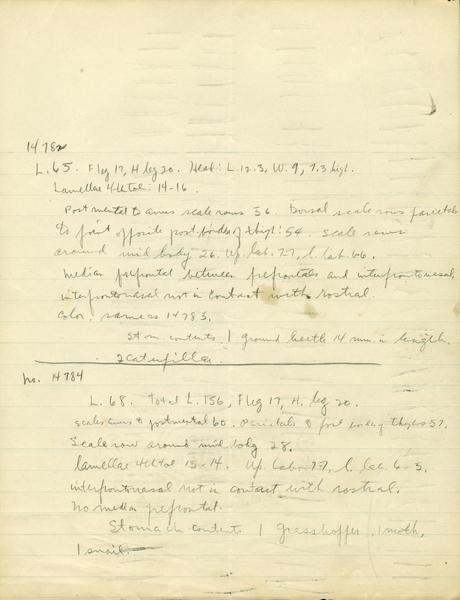 14782
L. 65. F leg 17, H leg 20. Head: L. 12.3, W. 9, 7.3 high.
Lamellae 4th toe: 14-16.
Postmental to anus scale rows 56. Dorsal scale rows parietals
to point opposite post border of thigh: 54. Scale rows
around mid body 26. Up. lab. 7-7, l. lab. 6-6.
Median prefrontal between prefrontals and interfrontonasal,
interfrontonasal not in contact with rostral.
Color. same as 14783.
Stom. contents. 1 ground beetle 14 mm. in length.
2 caterpillar.
No. 14784
L. 68. Total L. 156, F leg 17, H. leg 20.
scales anus to postmental 60. Parietals to post thighs 57.
Scale row around mid body 28.
lamellae 4th toe 15-14. Up. lab. 7-7, l. lab. 6-5.
interfrontonasal not in contact with rostral.
No median prefrontal.
Stomach contents 1 grasshopper, 1 moth,
1 snail.